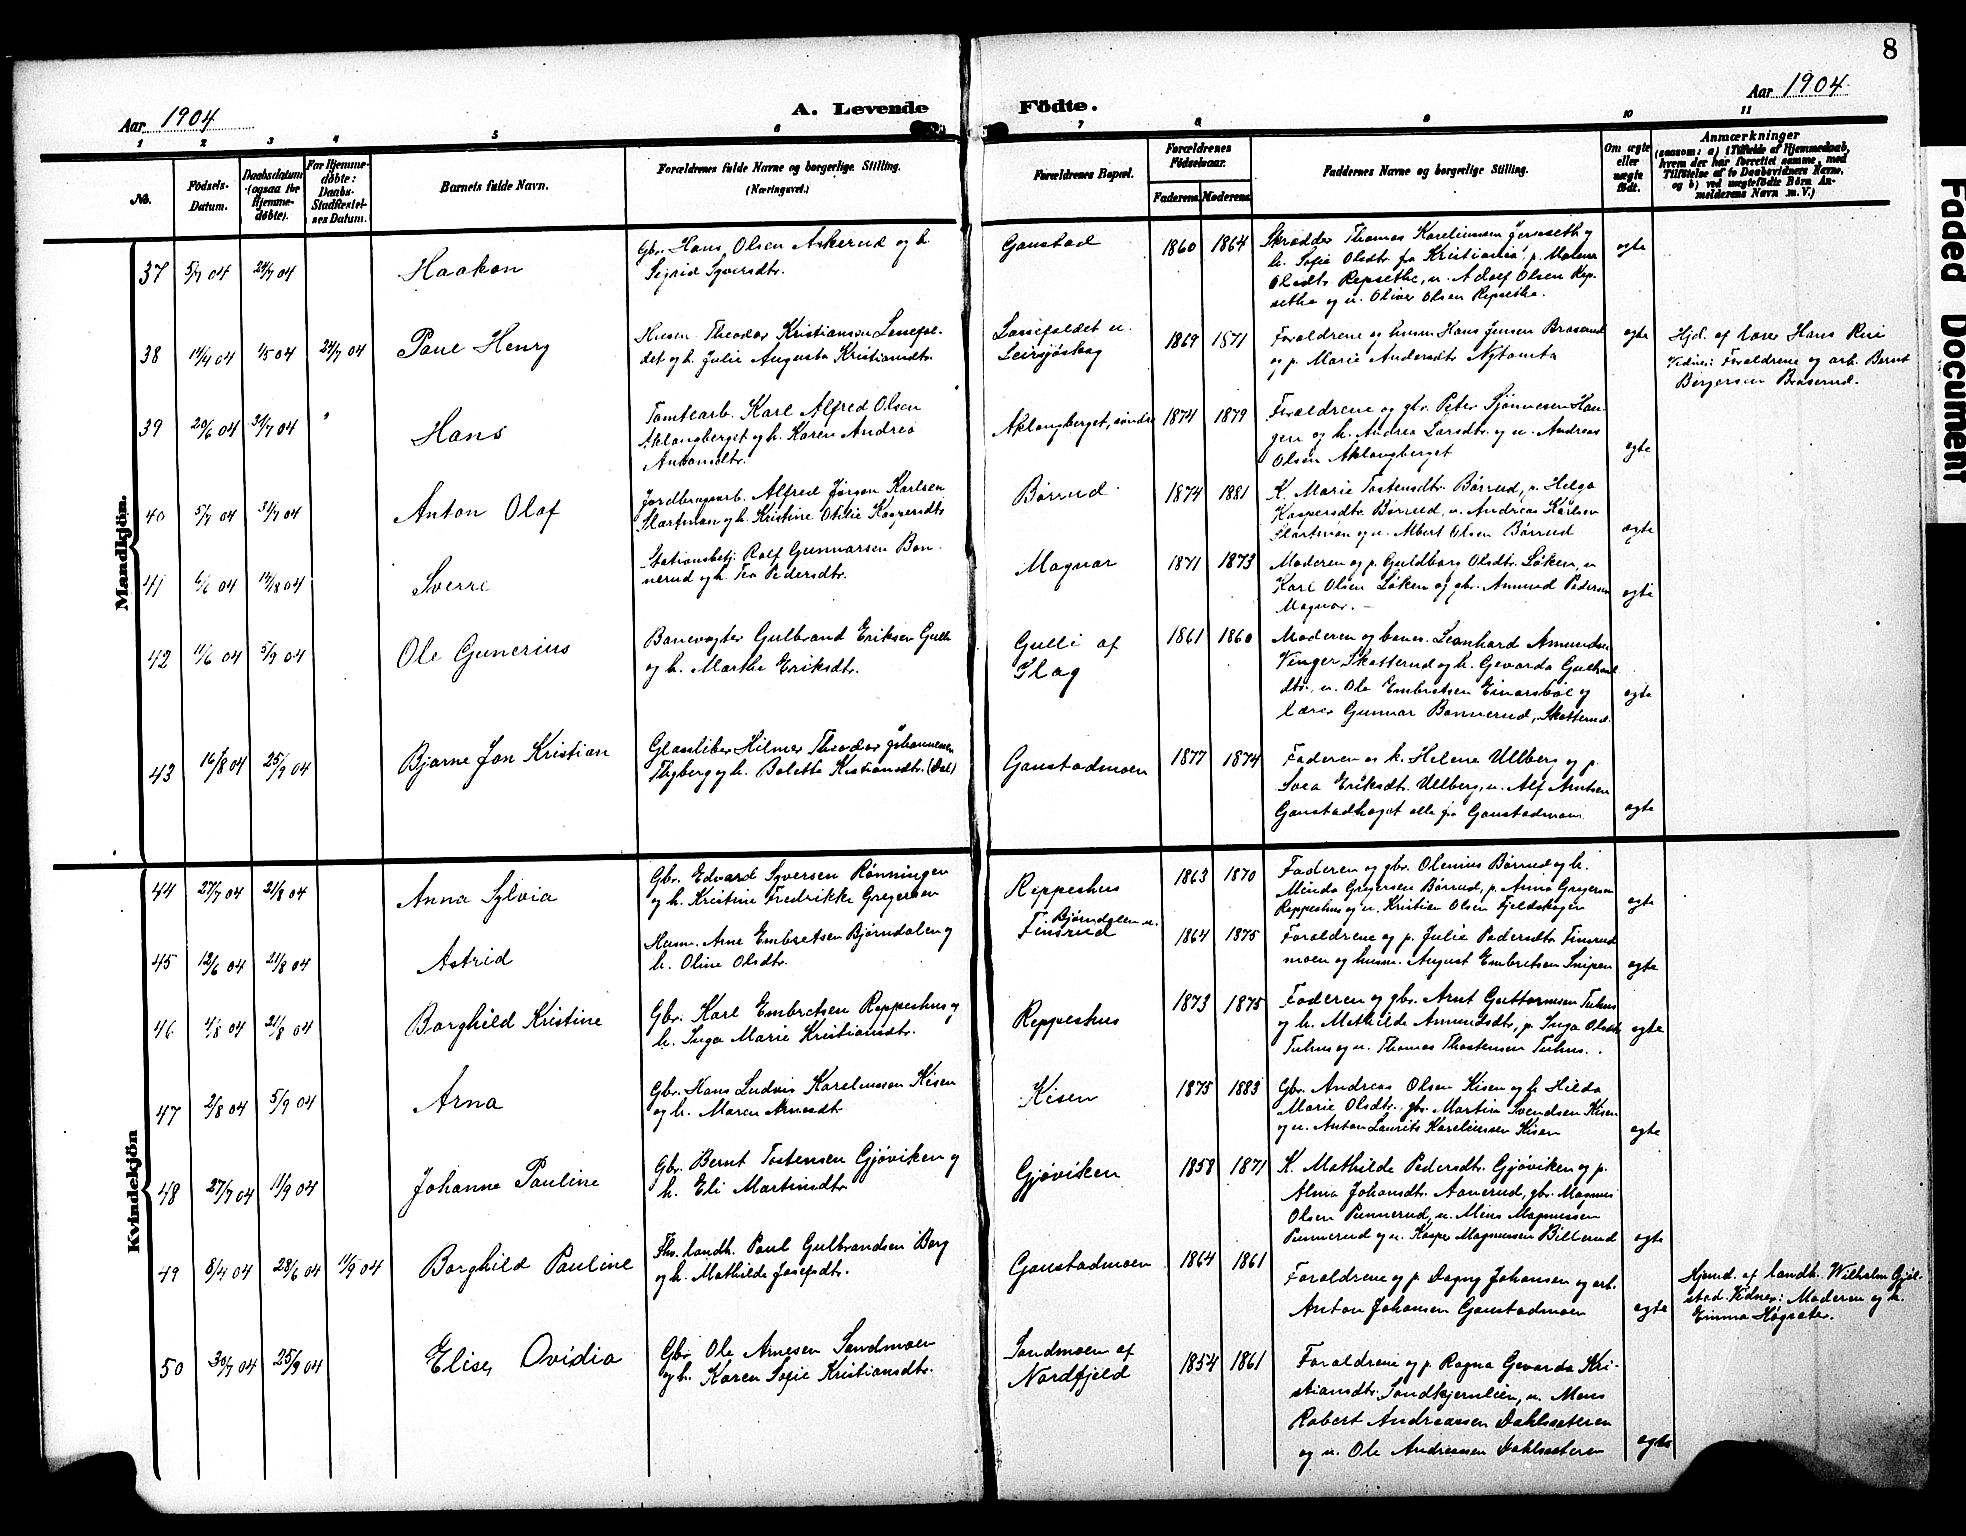 8
Aar 1904
A. Levende Födte.
Aar 1904
1 2 3 4 5 6 7 8 9 10 11
No.
Födsels-
Datum.
Daabsdatum
(ogsaa for
Hjemme-
døbte).
For Hjemme-
døbte:
Daabs-
Stadfæstel-
ses Datum.
Barnets fulde Navn.
Forældrenes fulde Navne og borgerlige Stilling.
(Næringsvei.)
Forældrenes Bopæl.
Forældrenes
Fødselsaar.
Faderens Moderens
Faddernes Navne og borgerlige Stilling.
Om ægte
eller
uægte
født.
Anmærkninger
(saasom: a) i Tilfælde af Hjemmedaab,
hvem der har forrettet samme, med
Tilføielse af to Daabsvidners Navne,
og b) ved uægtefødte Børn An-
melderens Navn m. V.)
Mandkjön.
37 5/7 04 24/7 04 Haakon
Gbr. Hans Olsen Askerud og h.
Sigrid Syversdtr.
Gaustad
1860 1864
Skrædder Thomas Karelinussen Jerneseth og
h. Sofie Olsdtr. fra Kristiania, p. Malena
Olsdtr. Repsethe, u. Adolf Olsen Rep-
sethe og u. Oliver Olsen Repsethe.
ægte
38 14/4 04 1/5 04 24/7 04 Paul Henry
Husm. Theodor Kristiansen Lassefol-
det og h. Julie Augusta Kristiansdtr.
Lassefoldet u.
Leirsjøskog
1869 1871
Forældrene og husm. Hans Jensen Braserud
og p. Marie Andersdtr. Nytomta
ægte
Hjd. af lærer Hans Risi
Vidner: Forældrene og arb. Bernt
Bergersen Braserud.
39 20/6 04 31/7 04 " Hans
Tomtearb. Karl Alfred Olsen
Aklangberget og h. Karen Andrea
Antonsdtr.
Aklangberget, søndre
1874 1879
Forældrene og gbr. Peter Sjønnesen Hau-
gen og h. Andrea Larsdtr. og u. Andreas
Olsen Aklangberget
ægte
40 5/7 04 31/7 04 Anton Olaf
Jordbrugsarb. Alfred Jørgen Karlsen
Slartmon og h. Kristine Otilie Kaspersdtr.
Børrud
1874 1881
K. Marie Tostensdtr. Børrud, p. Helga
Kaspersdtr. Børrud, u. Andreas Karlsen
Slartmon og u. Albert Olsen Børrud
ægte
41 6/6 04 14/8 04 Sverre
Stationsbetj. Rolf Gunnarsen Bon-
nerud og h. Tea Pedersdtr.
Magnor
1871 1873
Moderen og p. Guldborg Olsdtr. Løken, u.
Karl Olsen Løken og gbr. Amund Pedersen
Magnor. —
ægte
42 11/6 04 5/9 04 Ole Gunerius
Banevogter Gulbrand Eriksen Gulli
og h. Marthe Eriksdtr.
Gulli af
Flag
1861 1860
Moderen og banev. Leonhard Amundsen
Vinger Skotterud og h. Gevarda Gulbrand-
dtr., u. Ole Embretsen Einarsbøl og
lærer Gunnar Bonnerud, Skotterud.
ægte
43 16/8 04 25/9 04 Bjarne Jon Kristian
Glasliber Hilmer Theodor Johannesen
Thyberg og h. Bolette Kristiansdtr. (Dal)
Gaustadmoen
1877 1874
Faderen og k. Helene Ullberg og p.
Svea Eriksdtr. Ullberg, u. Alf Arntsen
Gaustadhaget alle fra Gaustadmoen
ægte
Kvindekjön
44 27/7 04 21/8 04 Anna Sylvia
Gbr. Edvard Syversen Rønningen
og h. Kristine Fredrikke Gregersen
Reppeshus
1863 1870
Faderen og gbr. Olenius Børrud og h.
Minda Gregersen Børrud, p. Anna Gregersen
Reppeshus og u. Kristian Olsen Fjeldskogen
ægte
45 12/6 04 21/8 04 Astrid
Husm. Arne Embretsen Bjørndalen og
h. Oline Olsdtr.
Bjørndalen u.
Finsrud
1864 1875
Forældrene og p. Julie Pedersdtr. Finsrud-
moen og husm. August Embretsen Snipen
ægte
46 1/8 04 21/8 04 Borghild Kristine
Gbr. Karl Embretsen Reppeshus og
h. Inga Marie Kristiansdtr.
Reppeshus
1873 1875
Faderen og gbr. Arnt Guttormsen Tuhus
og h. Mathilde Amundsdtr., p. Inga Olsdtr.
Tuhus og u. Thomas Thostensen Tuhus.
ægte
47 2/8 04 5/9 04 Arna
Gbr. Hans Ludvig Karelinusen Kisen
og h. Maren Arnesdtr.
Kisen
1875 1883
Gbr. Andreas Olsen Kisen og h. Hilda
Marie Olsdtr., gbr. Martin Svendsen Kisen
og u. Anton Laurits Karelinussen Kisen
ægte
48 27/7 04 11/9 04 Johanne Pauline
Gbr. Bernt Tostensen Gjøviken og
h. Eli Martinsdtr.
Gjøviken
1858 1871
K. Mathilde Pedersdtr. Gjøviken og p.
Alma Johansdtr. Aanerud, gbr. Magnus
Olsen Punnerud, u. Mens Magnussen
Punnerud og u. Kasper Magnussen Billerud
ægte
49 8/4 04 28/6 04 11/9 04 Borghild Pauline
Fhv. landh. Paul Gulbrandsen Berg
og h. Mathilde Josefsdtr.
Gaustadmoen
1864 1861
Forældrene og p. Dagny Johansen og arb.
Anton Johansen Gaustadmoen
ægte
Hjemd. af landh. Wilhelm Gjøl-
stad. Vidner: Moderen og h.
Emma Høgsæter.
50 30/7 04 25/9 04 Elise Ovidia
Gbr. Ole Arnesen Sandmoen
og h. Karen Sofie Kristiansdtr.
Sandmoen af
Nordfjeld
1854 1861
Forældrene og p. Ragna Gevarda Kri-
stiansdtr. Sandkjernlien, u. Mens
Robert Andreassen Dahlsæteren
og u. Ole Andreassen Dahlsæteren
ægte
Faded Document